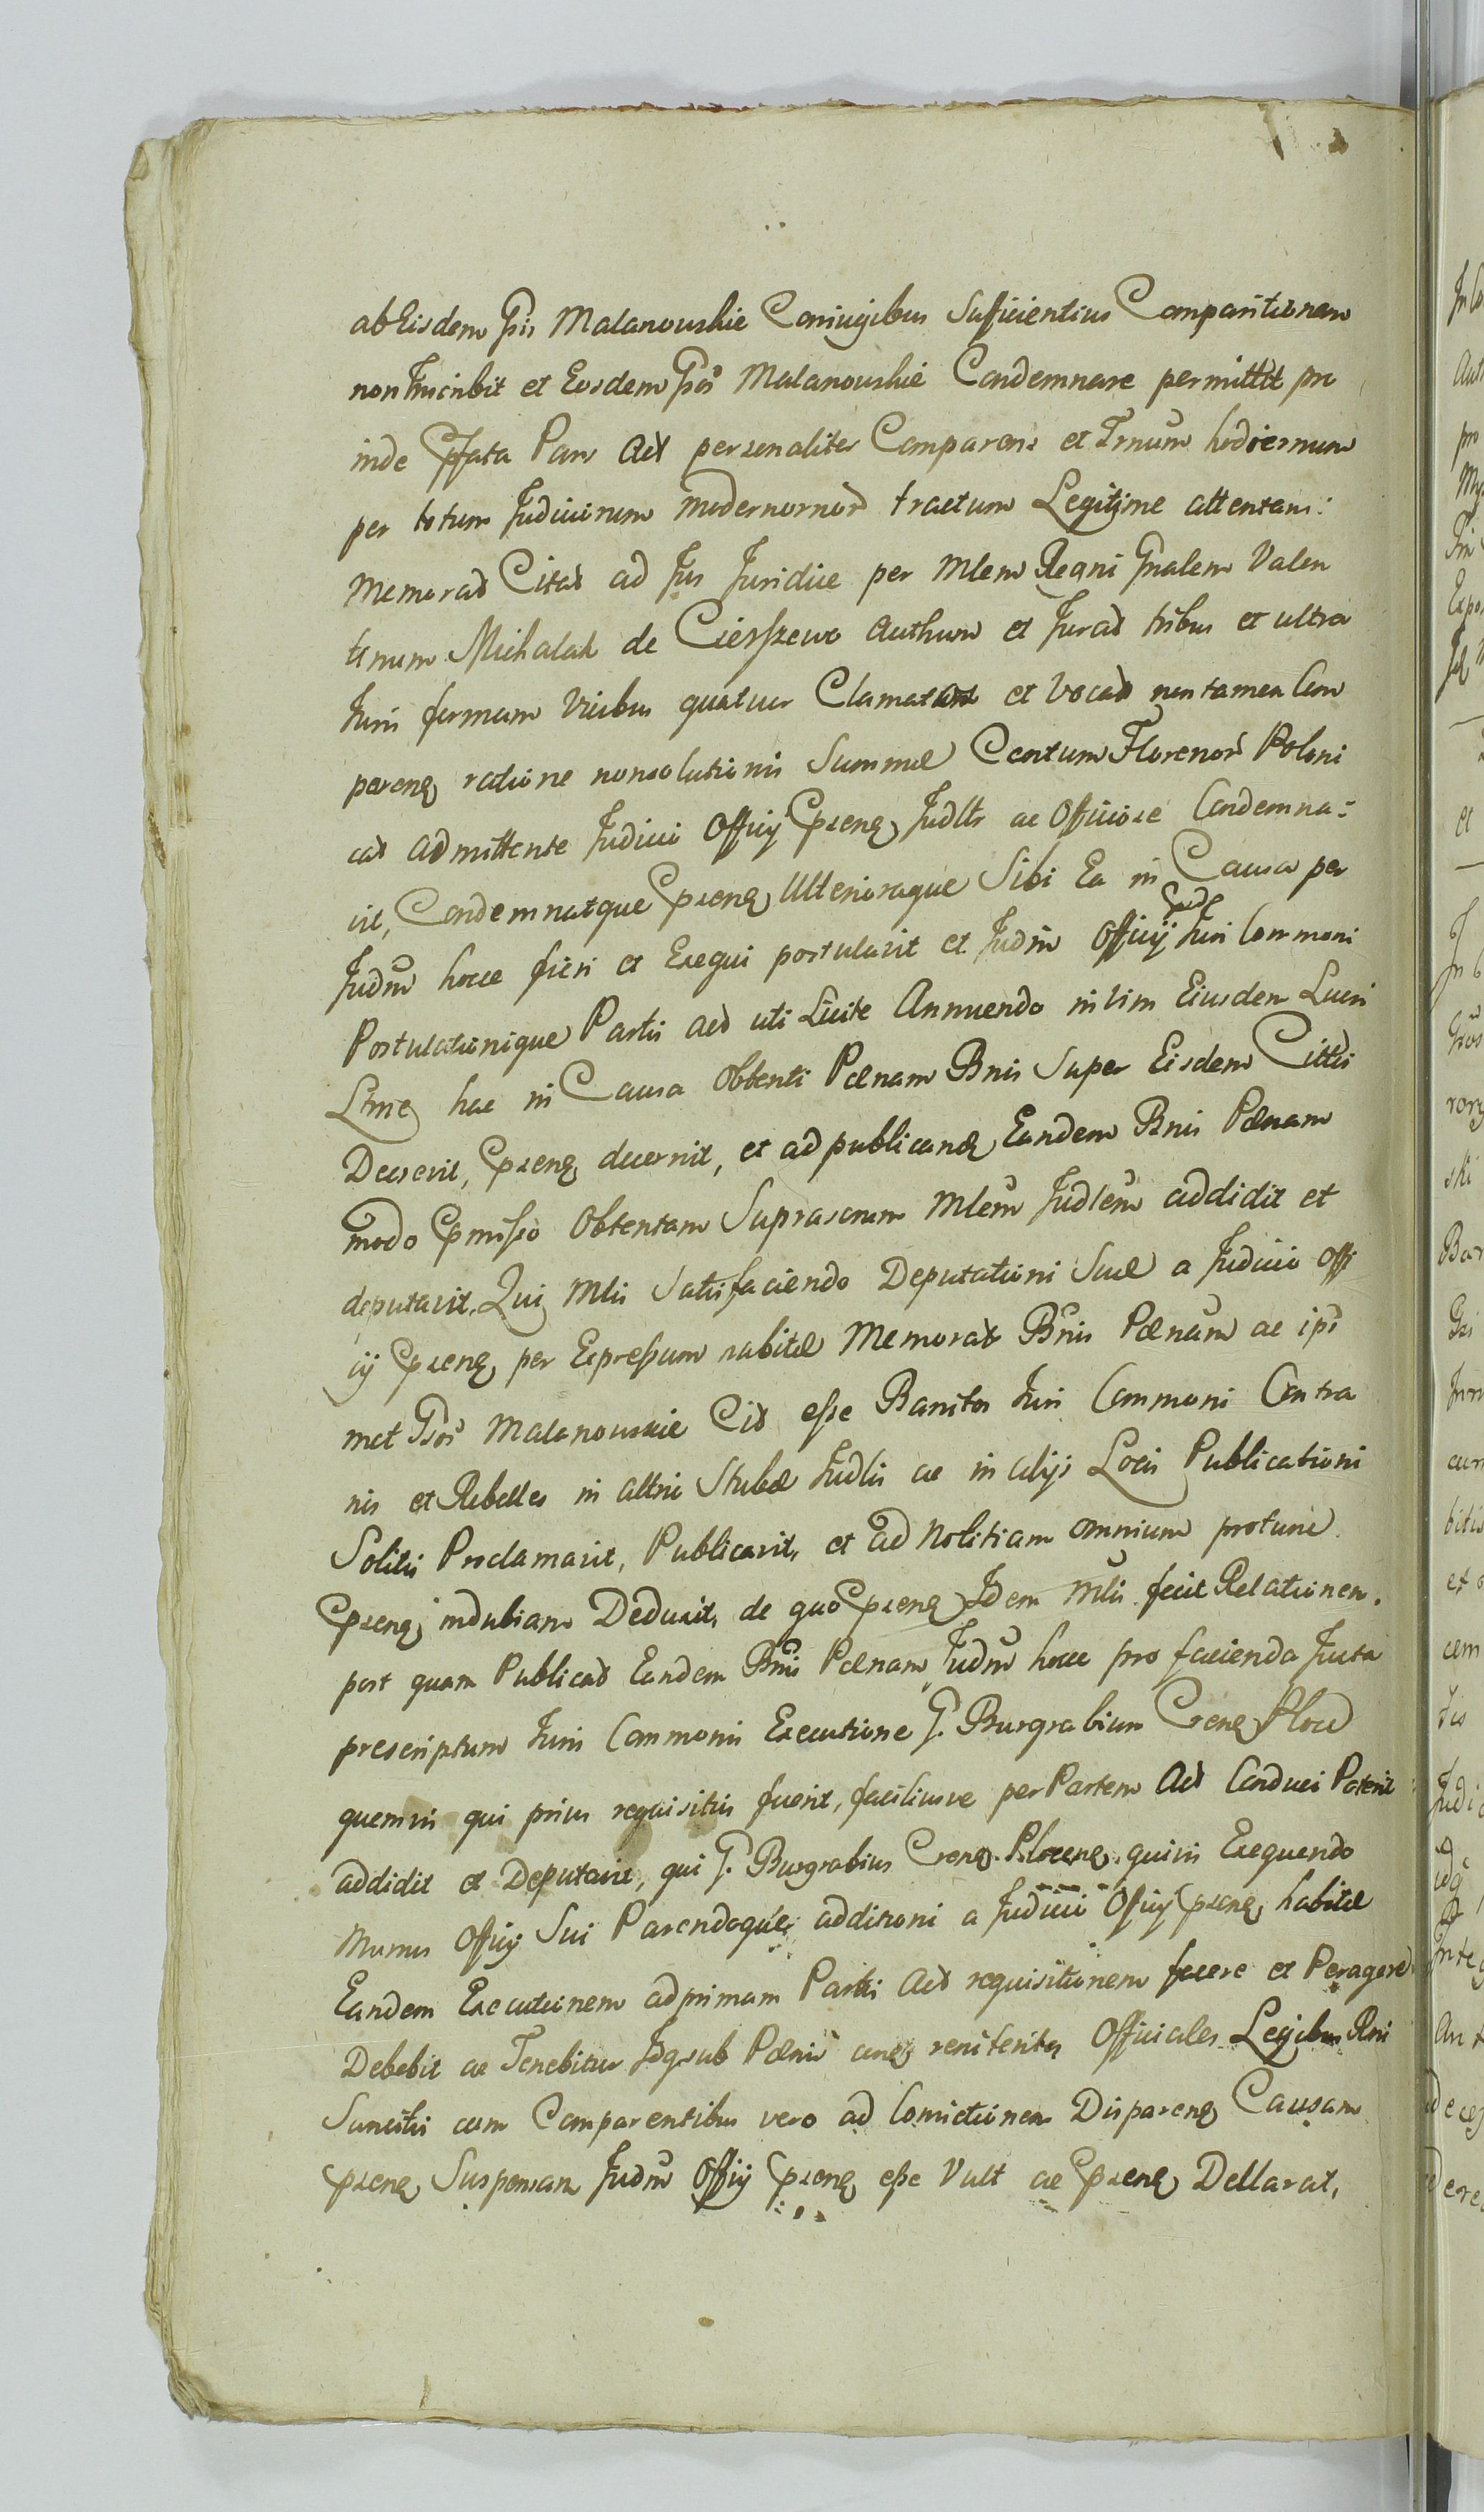 ab Eisdem Gsis Malanowskie Coniugibus Sufficientius Comparitionem
non Inscribit et Eosdem Gsos Malanowskie Condemnare permittit pro
inde Pfata Pars Act personaliter Comparens et Trnum hodiernum
per totum Judiciorum modernorum tractum Legitime attentans:
Memorat Citat ad Jus Juridice per Mlem Regni Gnalem Valen
tinum Michalak de Cierszewo Authum et Jurat tribus et ultra
Juris formam Vicibus quatuor Clamatos et Vocat non tamen Com
parenq ratione nonsolutionis Summae Centum Florenor Poloni
cat admittente Judicii Officij Psenq Judlr ac Officiose Condemna:
vit, Condemnatque Psenq Ulterioraque Sibi Ea in Causa per
Judm hocce fieri et Exequi postulavit et Judm Officij Juri Commoni
Postulationique Partis Act uti Licite Annuendo in Vim Eiusdem Lucri
Lme hac in Causa Obtenti Paenam Bnis Super Eisdem Cittis
Decrevit, Psenq decernit, et ad publicanq Eandem Bnis Paenam
modo Pmisso Obtentam Suprascrum Mlem Judlem addidit et
deputavit, Qui Mlis Satisfaciendo Deputationi Suae a Judicio Offi
cij Psenq per Expressum habitae Memorat Bnis Paenam ac ips
met Gsos Malanowskie Cit esse Banitos Juri Commoni Contra
rios et Rebelles in altrio Stubae Judlis ac in alijs Locis Publicationi
Solitis Proclamavit, Publicavit, et ad Notitiam omnium protunc
Psenq indubiam Deduxit, de quo Psenq Idem Mlis fecit Relationem.
post quam Publicat Eandem Bnis Paenam Judm hocce pro facienda Juxta
prescriptum Juris Commonis Executione G. Burgrabium Crenq Ploce
quemvis qui prius requisitus fuerit, faciliusve per Partem Act Conduci Poterit
addidit et Deputavit, qui G. Burgrabius Crenq Plocenq quivis Exequendo
Munus Officij Sui Parendoque additioni a Judicii Officij Psenq habitae
Eandem Executionem ad primam Partis Act requisitionem facere et Peragere
Debebit ac Tenebitur Idq sub Paenis renitentes Officiales Legibus Rni
Sancitis cum Comparentibus vero ad Convictionem Disparenq Causam
Psenq Suspensam Judm Offij Psenq esse Vult ac Psenq Declarat,